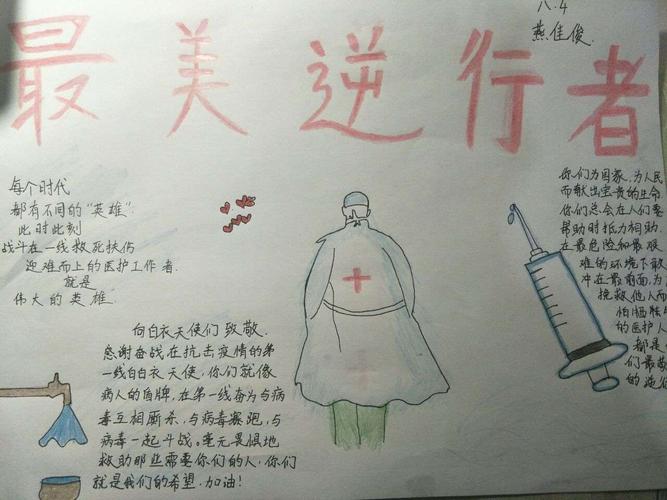 八.4
燕佳俊.
最美逆行者
每个时代
都有不同的"英雄".
此时此刻
战斗在一线救死扶伤
迎难而上的医护工作者.
就是
伟大的英雄.
向白衣天使们致敬.
感谢奋战在抗击疫情的第
一线白白衣天使,你们就像
病人的盾牌,在第一线奋为与病
毒互相厮杀,与病毒赛跑,与
病毒一起斗战。毫无畏惧地
救助那些需要你们的人,你们
就是我们的希望.加油!
你们为国家,为人民
而献出宝贵的生命.
你们总会在人们需
帮助时抵力相助.
在最危险和最艰
难的环境下敢
冲在最前面,为
挽救他人而
怕牺牲
的医护人
都是
们最敬
的